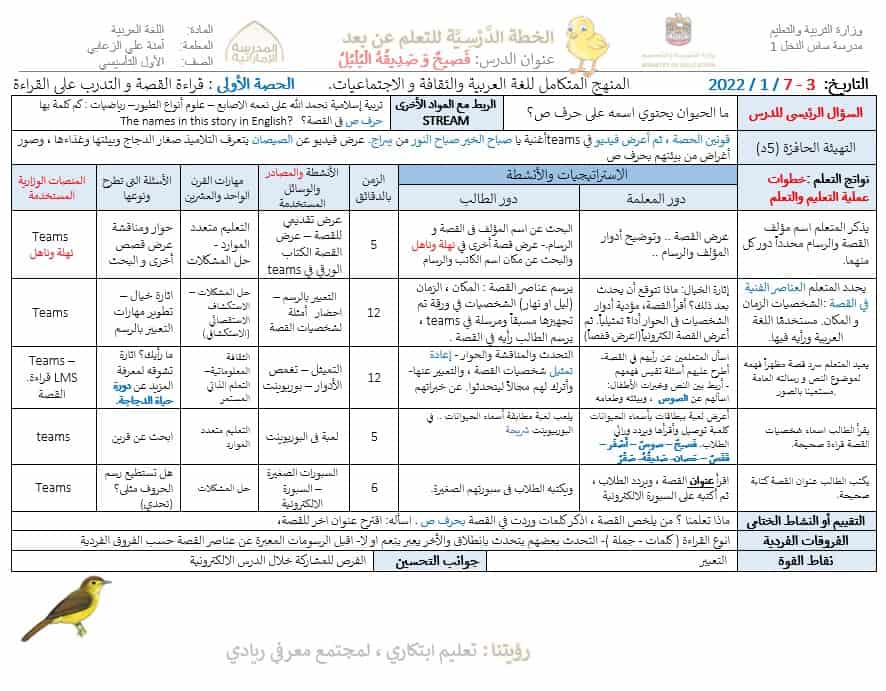 وزارة التربية والتعليم
مدرسة ساس النخل 1
MINISTRY OF EDUCATION
الخطة الدَّرْسِيَّة للتعلم عن بعد
عنوان الدرس: فَصيحٌ وَ صَديقُهُ الْبُلْبُلُ
المدرسة الإماراتية
المادة: اللغة العربية
المعلمة: آمنة علي الزعابي
الصف: الأول التأسيسي
التاريخ: 3 - 7 / 1 / 2022
المنهج المتكامل للغة العربية والثقافة و الاجتماعيات.
الحصة الأولى : قراءة القصة و التدرب على القراءة
السؤال الرئيسي للدرس
ما الحيوان يحتوي اسمه على حرف ص؟
الربط مع المواد الأخرى
STREAM
تربية إسلامية نحمد الله على نعمه الاصابع – علوم أنواع الطيور– رياضيات : كم كلمة بها
حرف ص في القصة؟ The names in this story in English?
التهيئة الحافزة (5د)
قونين الحصة ، ثم أعرض فيديو في teamsأغنية يا صباح الخير صباح النور من سِراج. عرض فيديو عن الصيصان يتعرف التلاميذ صغار الدجاج وبيئتها وغذاءها ، وصور
أغراض من بيئتهم بحرف ص
نواتج التعلم :خطوات
عملية التعليم والتعلم
الاستراتيجيات والأنشطة
دور المعلمة
دور الطالب
الزمن
بالدقائق
الأنشطة والمصادر
والوسائل
المستخدمة
مهارات القرن
الواحد والعشرين
الأسئلة التي تطرح
ونوعها
المنصات الوزارية
المستخدمة
يذكر المتعلم اسم مؤلف
القصة والرسام محدداً دور كل
منهما.
عرض القصة .. وتوضيح أدوار
المؤلف والرسام ..
البحث عن اسم المؤلف في القصة و
الرسام.- عرض قصة أخرى في نهلة وناهل
والبحث عن مكان اسم الكاتب والرسام
5
عرض تقديمي
للقصة – عرض
القصة الكتاب
الورقي في teams
التعليم متعدد
الموارد -
حل المشكلات
حوار ومناقشة
عرض قصص
أخرى و البحث
Teams
نهلة وناهل
يحدد المتعلم العناصر الفنية
في القصة :الشخصيات الزمان
و المكان. مستخدمًا اللغة
العربية ورأيه فيها.
إثارة الخيال: ماذا تتوقع أن يحدث
بعد ذلك؟ أقرأ القصة، مؤدية أدوار
الشخصيات في الحوار أداءً تمثيلياً. ثم
أعرض القصة الكترونياً(اعرض قفصاً)
يرسم عناصر القصة : المكان ، الزمان
(ليل او نهار) الشخصيات في ورقة تم
تجهيزها مسبقاً ومرسلة في teams ،
يرسم الطالب رأيه في القصة .
12
التعبير بالرسم –
احضار أمثلة
لشخصيات القصة
حل المشكلات –
الاستكشاف
الاستقصائي
(الاستكشافي)
اثارة خيال –
تطوير مهارات
التعبير بالرسم
Teams
يعيد المتعلم سرد قصة مظهراً فهمه
لموضوع النص و رسالته العامة
.مستعينا بالصور
اسأل المتعلمين عن رأيهم في القصة-
أطرح عليهم أسئلة تقيس فهمهم
- أربط بين النص وخبرات الأطفال:
اسألهم عن الصوص ، وبيئته وطعامه
التحدث والمناقشة والحوار - إعادة
تمثيل شخصيات القصة ، والتعبير عنها-
وأترك لهم مجالاً ليتحدثوا. عن خبراتهم
12
التمثيل – تقمص
الأدوار – بوربوينت
الثقافة
المعلوماتية–
التعلم الذاتي
المستمر
ما رأيك؟ اثارة
تشوقه لمعرفة
المزيد عن دورة
حياة الدجاجة.
Teams –
LMS قراءة.
القصة
يقرأ الطالب اسماء شخصيات
القصة قراءة صحيحة.
أعرض لعبة ببطاقات بأسماء الحيوانات
كلعبة توصيل وأقرأها ويردد ورائي
الطلاب. فَصيحٌ – صوصٌ – أصْفَر –
قَفَصٌ – حَصان- صَديقُهُ- صَقْرٌ
يلعب لعبة مطابقة أسماء الحيوانات .. في
البوربوينت شريحة
5
لعبة في البوربوينت
التعليم متعدد
الموارد
ابحث عن قرين
teams
يكتب الطالب عنوان القصة كتابة
صحيحة.
اقرأ عنوان القصة ، ويردد الطلاب ،
ثم أكتبه على السبورة الالكترونية
ويكتبه الطلاب في سبورتهم الصغيرة.
6
السبورات الصغيرة
– السبورة
الالكترونية
حل المشكلات
هل تستطيع رسم
الحروف مثلي؟
(تحدي)
Teams
التقييم أو النشاط الختامي
ماذا تعلمنا ؟ من يلخص القصة ، اذكر كلمات وردت في القصة بحرف ص . اسأله: اقترح عنوان اخر للقصة،
الفروقات الفردية
انوع القراءة ( كلمات - جملة )- التحدث بعضهم يتحدث بإنطلاق والأخر يعبر بنعم او لا- اقبل الرسومات المعبرة عن عناصر القصة حسب الفروق الفردية
نقاط القوة
التعبير
جوانب التحسين
الفرص للمشاركة خلال الدرس الالكترونية
رؤيتنا : تعليم ابتكاري ، لمجتمع معرفي ريادي